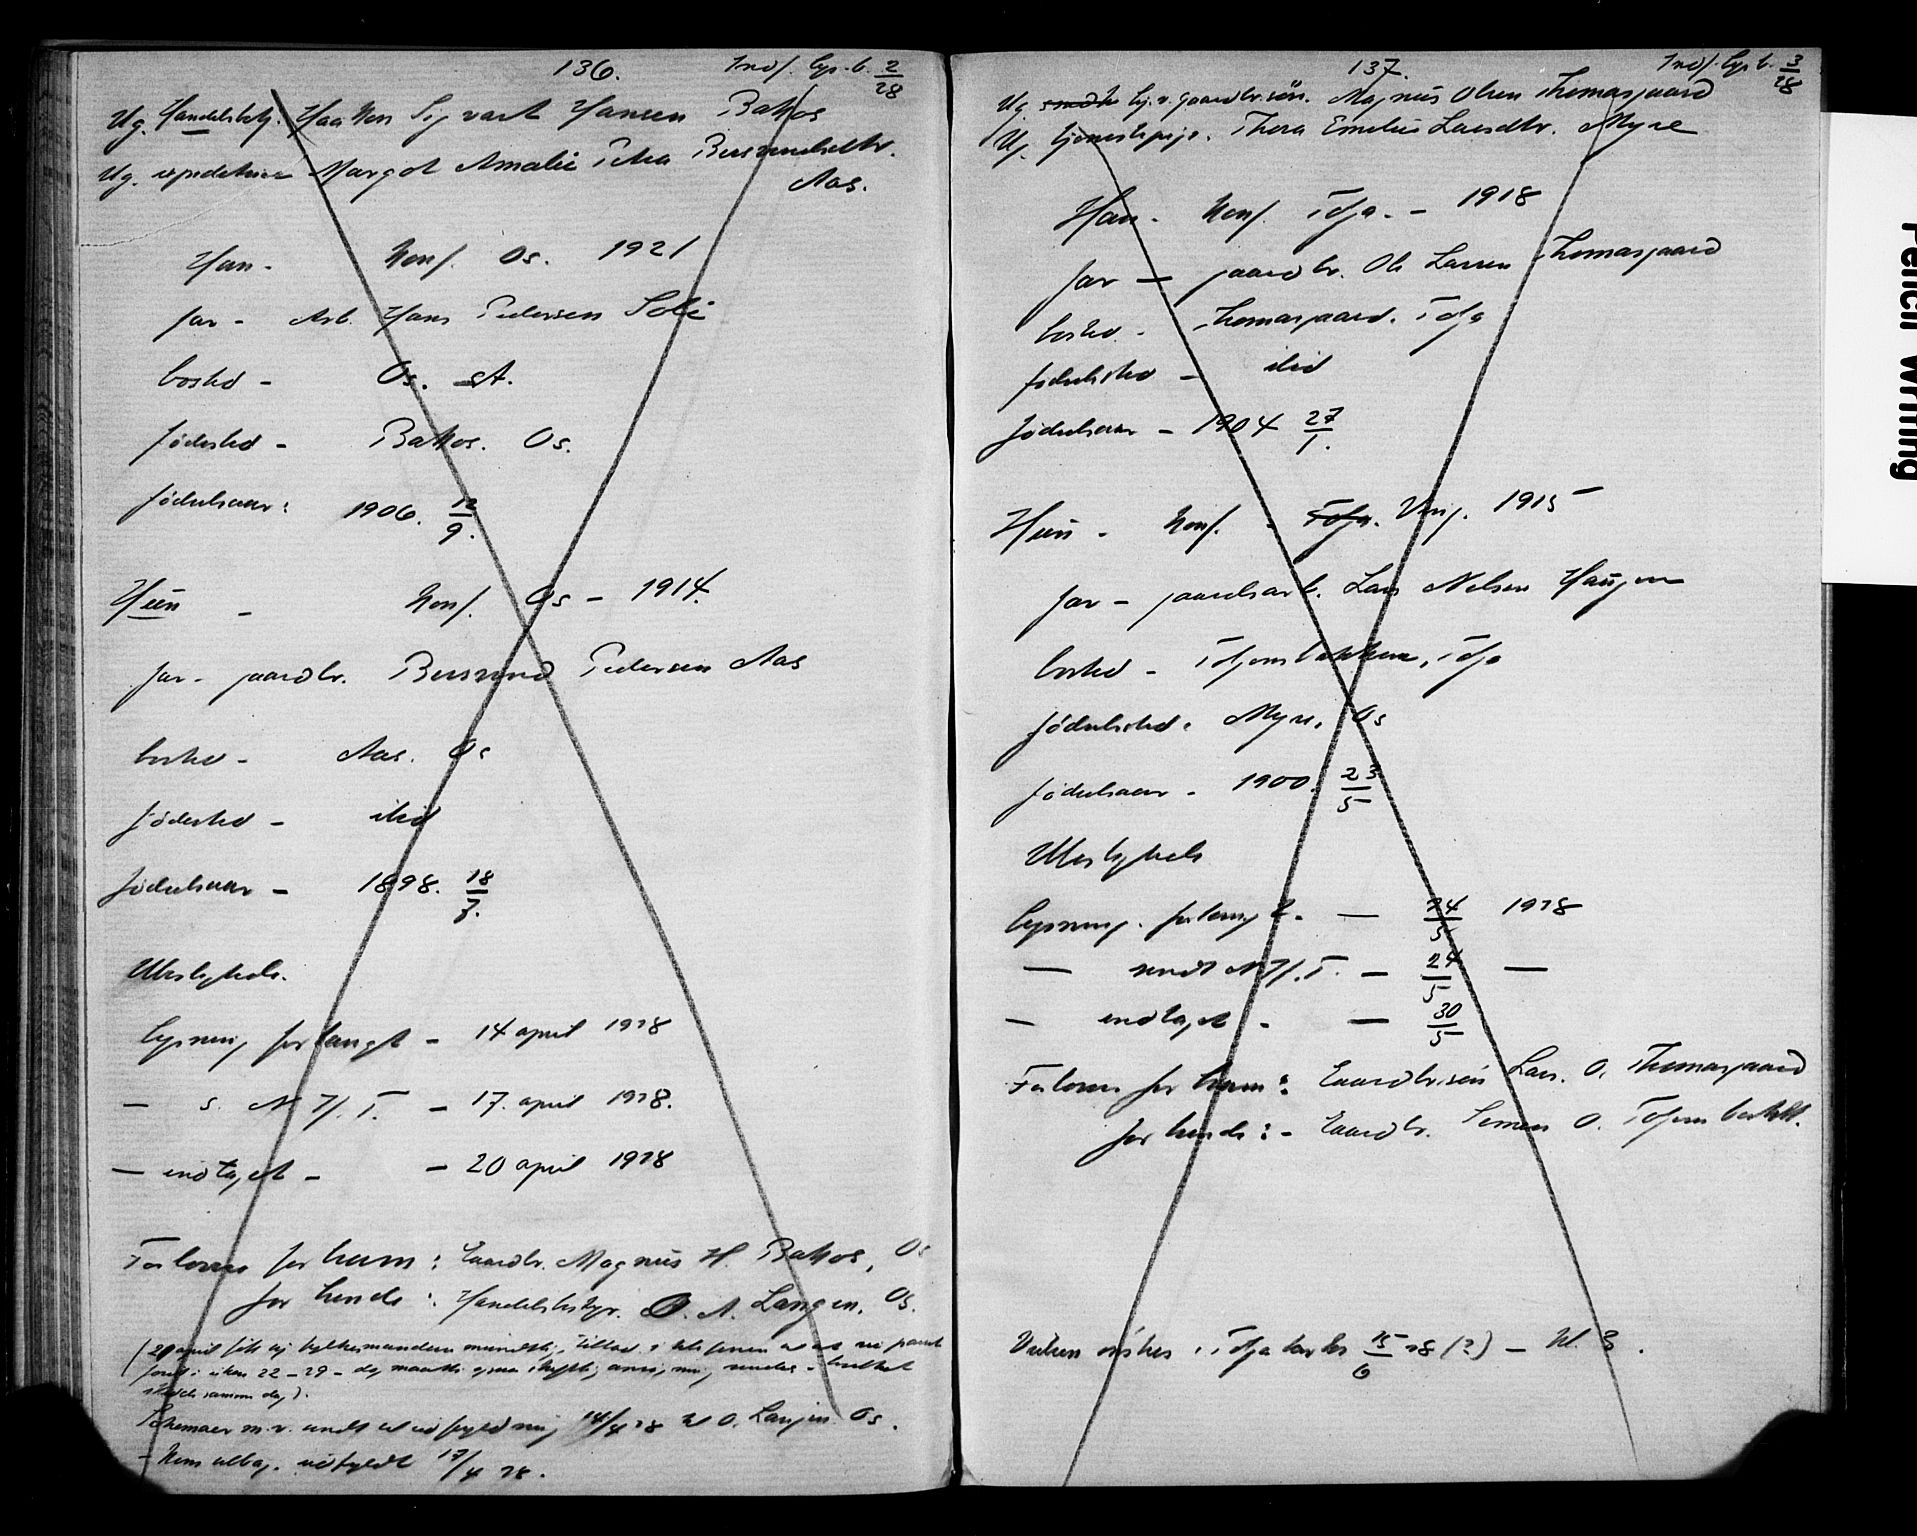 136. Indf. lys.b. 2/28
Ug. Handelsbetj. Haakon Sigvart Hansen Bakos
Ug. expeditrice Margot Amalie Petra Bersvendsdtr.
Aas.
Han - Konf. Os. 1921
far - Arb. Hans Pedersen Solli
bosted - Os. st.
fødested - Bakos. Os.
fødselsaar: 1906. 12/9.
Hun - Konf. Os - 1914.
far - gaardbr. Bersvend Pedersen Aas
bosted - Aas. Os
fødested - ibid
fødselsaar - 1898. 18/7.
Ubeslegtede.
lysning forlangt - 14 april 1928
— s. N. T. - 17. april 1928.
— indtaget - - 20 april 1928
Forlover for ham: Gaardbr. Magnus H. Bakos, Os
for hende: Handelsbestyr. O. A. Langen. Os.
(20 april fik ej lykkesmandens mundtlig tillad. i telefonen
22 - 29 -
samme dag).
Schemaer m.v. sendt til udfyldning 14/4 28 til O. Langen. Os.
- Kom tilbag. udfyldt 17/4 28.
137. Indf. lys.b. 3/28
Ug. gaardbr.søn. Magnus Olsen Thomasgaard
Ug. tjenestepige. Thora Emelie Larsdtr. Myre
Han - Konf. Tolga. - 1918
far — gaardbr. Ole Larsen Thomasgaard
bosted - Thomasgaard. Tolga
fødselssted - ibid
fødselsaar - 1904 27/1.
Hun - Konf. Tolga. Ving. 1915
far - gaardsarb. Lars Nelsen Haugen
bosted - Tolgensbakken, Tolga
fødselssted. Myre, Os
fødselsaar - 1900. 23/5
Ubeslegtede
lysning. forlangt. — 24/5 1928
— sendt N. T. - 24/5 —
— indtaget - — 30/5
Forlover for ham: Gaardbr.søn Lars. O. Thomasgaard
for hende: - Gaardbr. Simen O. Tolgensbakk.
Vielsen ønskes i Tolga kirke 15/6 28 (?) - kl. 3.
Pencil Writing